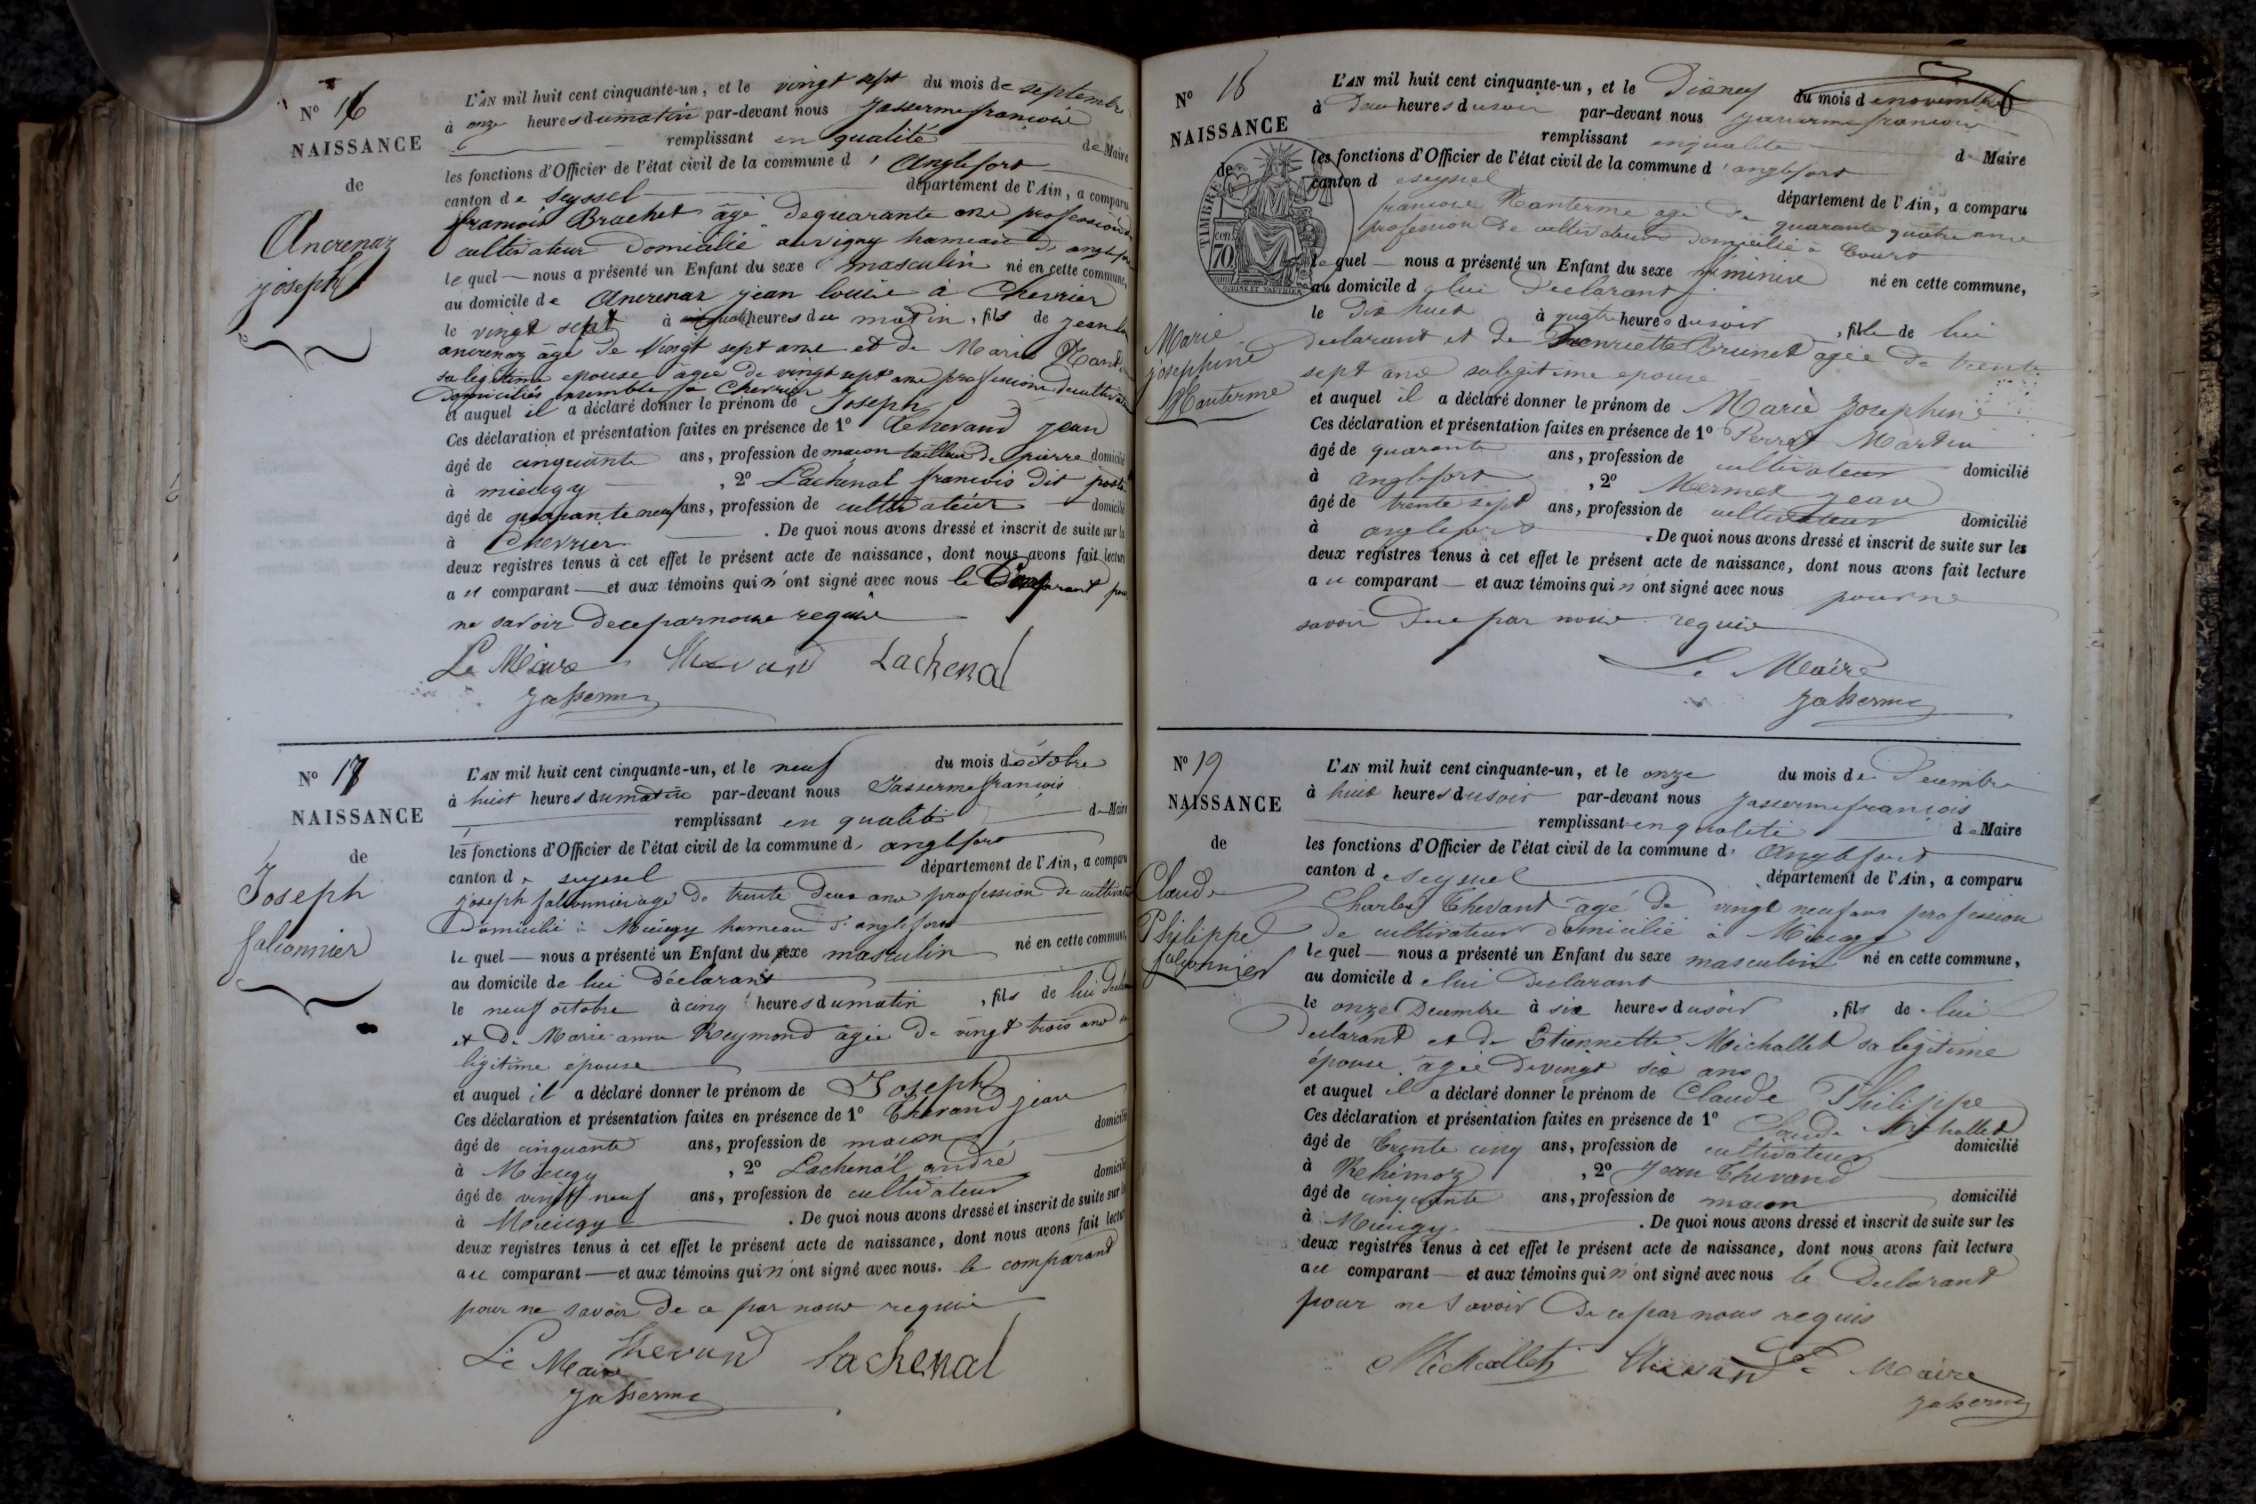 Nº 16
NAISSANCE
de
Ancrenaz
joseph
L'AN mil huit cent cinquante-un, et le vingt sept du mois de septembre
à onze heures du matin par-devant nous Jasserme françois
remplissant en qualité de Maire
les fonctions d'Officier de l'état civil de la commune d'Anglefort
canton de Seyssel département de l'Ain, a comparu
françois Brachet âgé de quarante profession
cultivateur domicilié hameau
le quel nous a présenté un Enfant du sexe masculin né en cette commune,
au domicile de Ancrenaz jean louis à Chevrier
le vingt sept à heures du matin, fils de jean
ancrenaz âgé de vingt sept ans et de Marie
sa legitime epouse agée de vingt sept ans profession
domiciliés ensemble à Chevrier
et auquel il a déclaré donner le prénom de Joseph
Ces déclaration et présentation faites en présence de 1º Thevand jean
âgé de cinquante ans, profession de macon tailleur de pierre domicilié
à mieugy, 2º Lachenal francois dit
âgé de quarante neuf ans, profession de cultivateur domicilié
à Chevrier. De quoi nous avons dressé et inscrit de suite sur les
deux registres tenus à cet effet le présent acte de naissance, dont nous avons fait lecture
au comparant et aux témoins qui n'ont signé avec nous le pour
ne savoir de ce par nous requis
Le Maire Thevand Lachenal
Jasserme
Nº 17
NAISSANCE
de
Joseph
falconnier
L'AN mil huit cent cinquante-un, et le neuf du mois d'octobre
à huit heures du matin par-devant nous Jasserme françois
remplissant en qualité de Maire
les fonctions d'Officier de l'état civil de la commune d'anglefort
canton de seyssel département de l'Ain, a comparu
joseph falconnier age de trente deux ans profession de cultivateur
domicilié à Mieugy hameau d'anglefort
le quel nous a présenté un Enfant du sexe masculin né en cette commune,
au domicile de lui déclarant
le neuf octobre à cinq heures du matin, fils de lui
et de Marie anne Reymond agée de vingt trois ans
légitime épouse
et auquel il a déclaré donner le prénom de Joseph
Ces déclaration et présentation faites en présence de 1º Thevand jean
âgé de cinquante ans, profession de macon domicilié
à Mieugy, 2º Lachenal andré
âgé de vingt neuf ans, profession de cultivateur domicilié
à Mieugy. De quoi nous avons dressé et inscrit de suite sur les
deux registres tenus à cet effet le présent acte de naissance, dont nous avons fait lecture
au comparant et aux témoins qui n'ont signé avec nous. le comparant
pour ne savoir de ce par nous requis
Le Maire Thevand Lachenal
Jasserme
Nº 18
NAISSANCE
de
TIMBRE
70
Marie
josephine
Manterme
L'AN mil huit cent cinquante-un, et le Dixneuf du mois de novembre
à Deux heures du soir par-devant nous Jasserme francois
remplissant en qualité de Maire
les fonctions d'Officier de l'état civil de la commune d'anglefort
canton de seyssel département de l'Ain, a comparu
francois Manterme agé de quarante quatre ans
profession de cultivateur domicilié à
le quel nous a présenté un Enfant du sexe féminin né en cette commune,
au domicile de lui Déclarant
le Dix huit à quatre heures du soir, fille de lui
declarant et de henriette Brunet agée de trente
sept ans sa legitime epouse
et auquel il a déclaré donner le prénom de Marie Josephine
Ces déclaration et présentation faites en présence de 1º Perret Martin
âgé de quarante ans, profession de cultivateur domicilié
à anglefort, 2º Mermet jean
âgé de trente sept ans, profession de cultivateur domicilié
à anglefort. De quoi nous avons dressé et inscrit de suite sur les
deux registres tenus à cet effet le présent acte de naissance, dont nous avons fait lecture
au comparant et aux témoins qui n'ont signé avec nous pour ne
savoir de ce par nous requis
Le Maire
Jasserme
Nº 19
NAISSANCE
de
Claude
Philippe
falconnier
L'AN mil huit cent cinquante-un, et le onze du mois de Decembre
à huit heures du soir par-devant nous Jasserme francois
remplissant en qualité de Maire
les fonctions d'Officier de l'état civil de la commune d'Anglefort
canton de seyssel département de l'Ain, a comparu
Charles Thevand agé de vingt neuf ans profession
de cultivateur domicilié à Mieugy
le quel nous a présenté un Enfant du sexe masculin né en cette commune,
au domicile de lui Declarant
le onze Decembre à six heures du soir, fils de lui
Declarant et de Etiennette Michallet sa légitime
épouse agée de vingt six ans
et auquel il a déclaré donner le prénom de Claude Philippe
Ces déclaration et présentation faites en présence de 1º Claude Michallet
âgé de trente cinq ans, profession de cultivateur domicilié
à Rhémoz, 2º Jean Thevand
âgé de cinquante ans, profession de macon domicilié
à Mieugy. De quoi nous avons dressé et inscrit de suite sur les
deux registres tenus à cet effet le présent acte de naissance, dont nous avons fait lecture
au comparant et aux témoins qui n'ont signé avec nous le Declarant
pour ne savoir de ce par nous requis
Michallet Thevand Le Maire
Jasserme